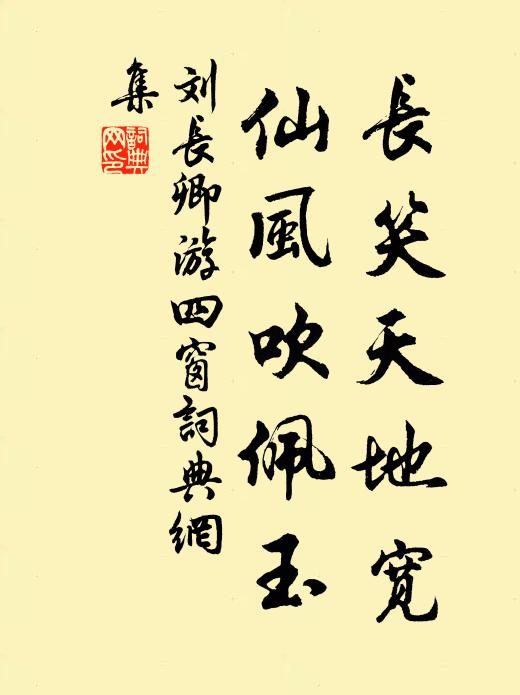 長笑天地寬
仙風吹佩玉
刘長卿游四窗詞典網
集
詞典
网印